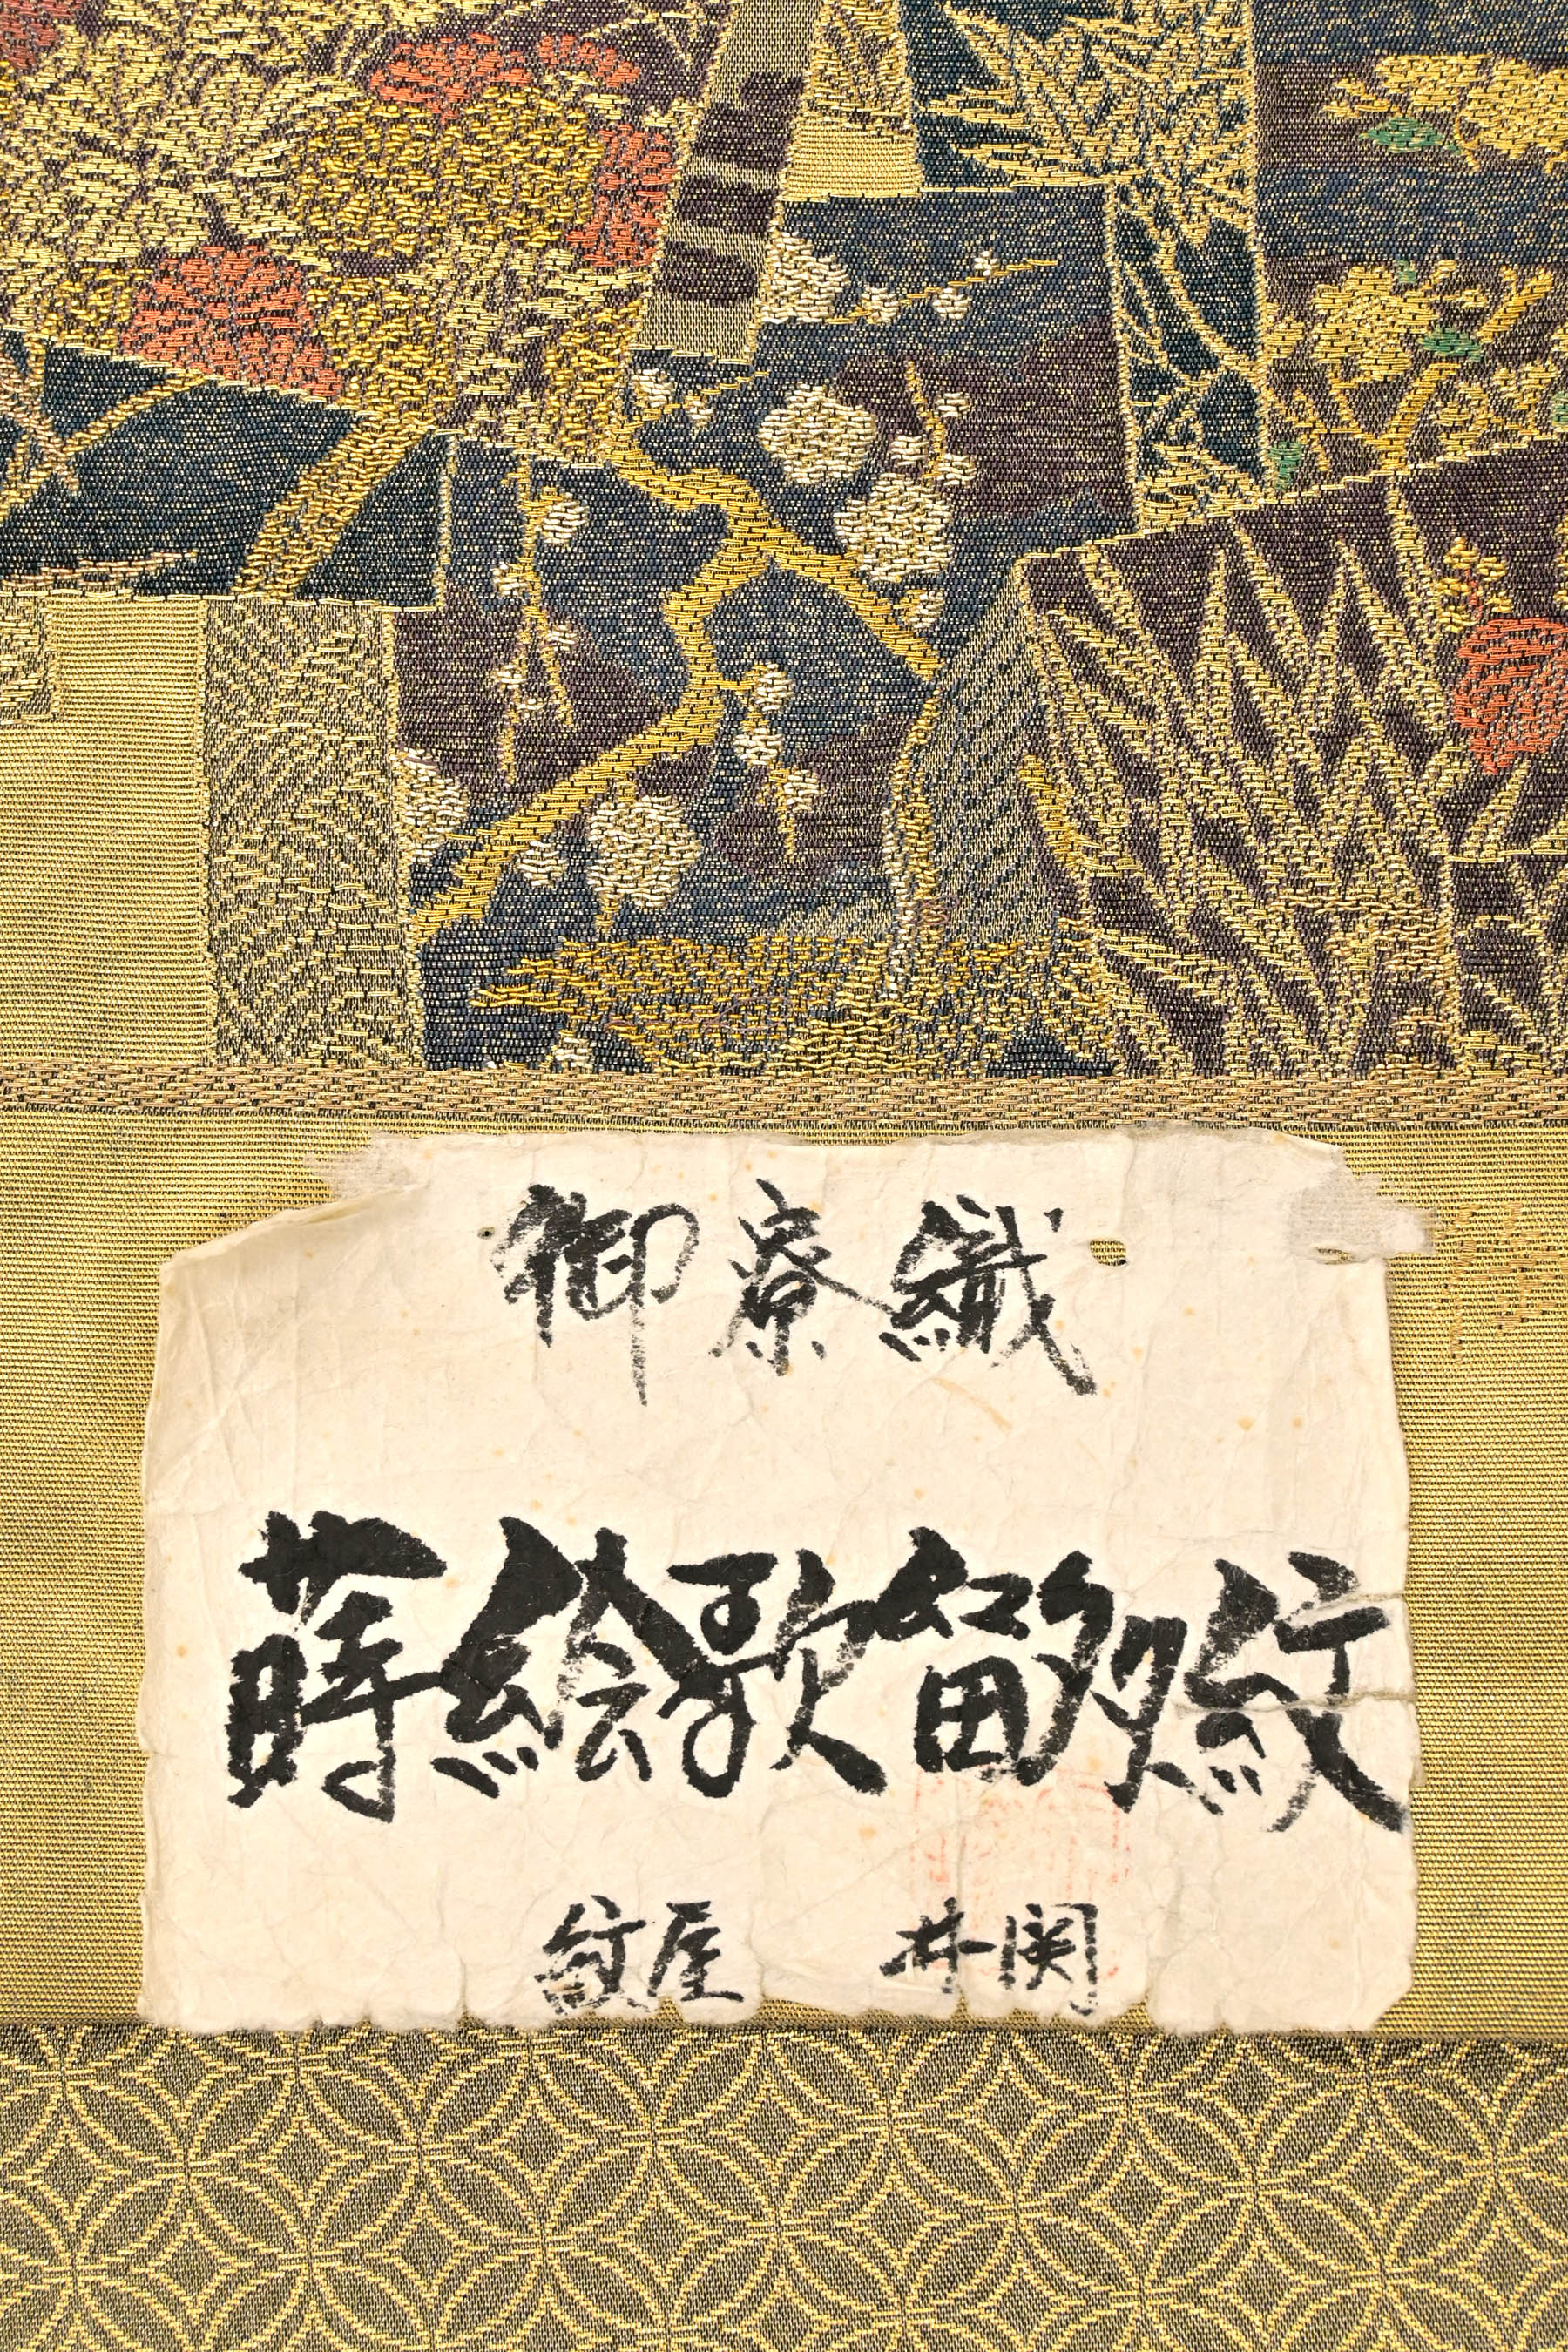 御寮織
蒔絵歌留多紋
紋屋 井関